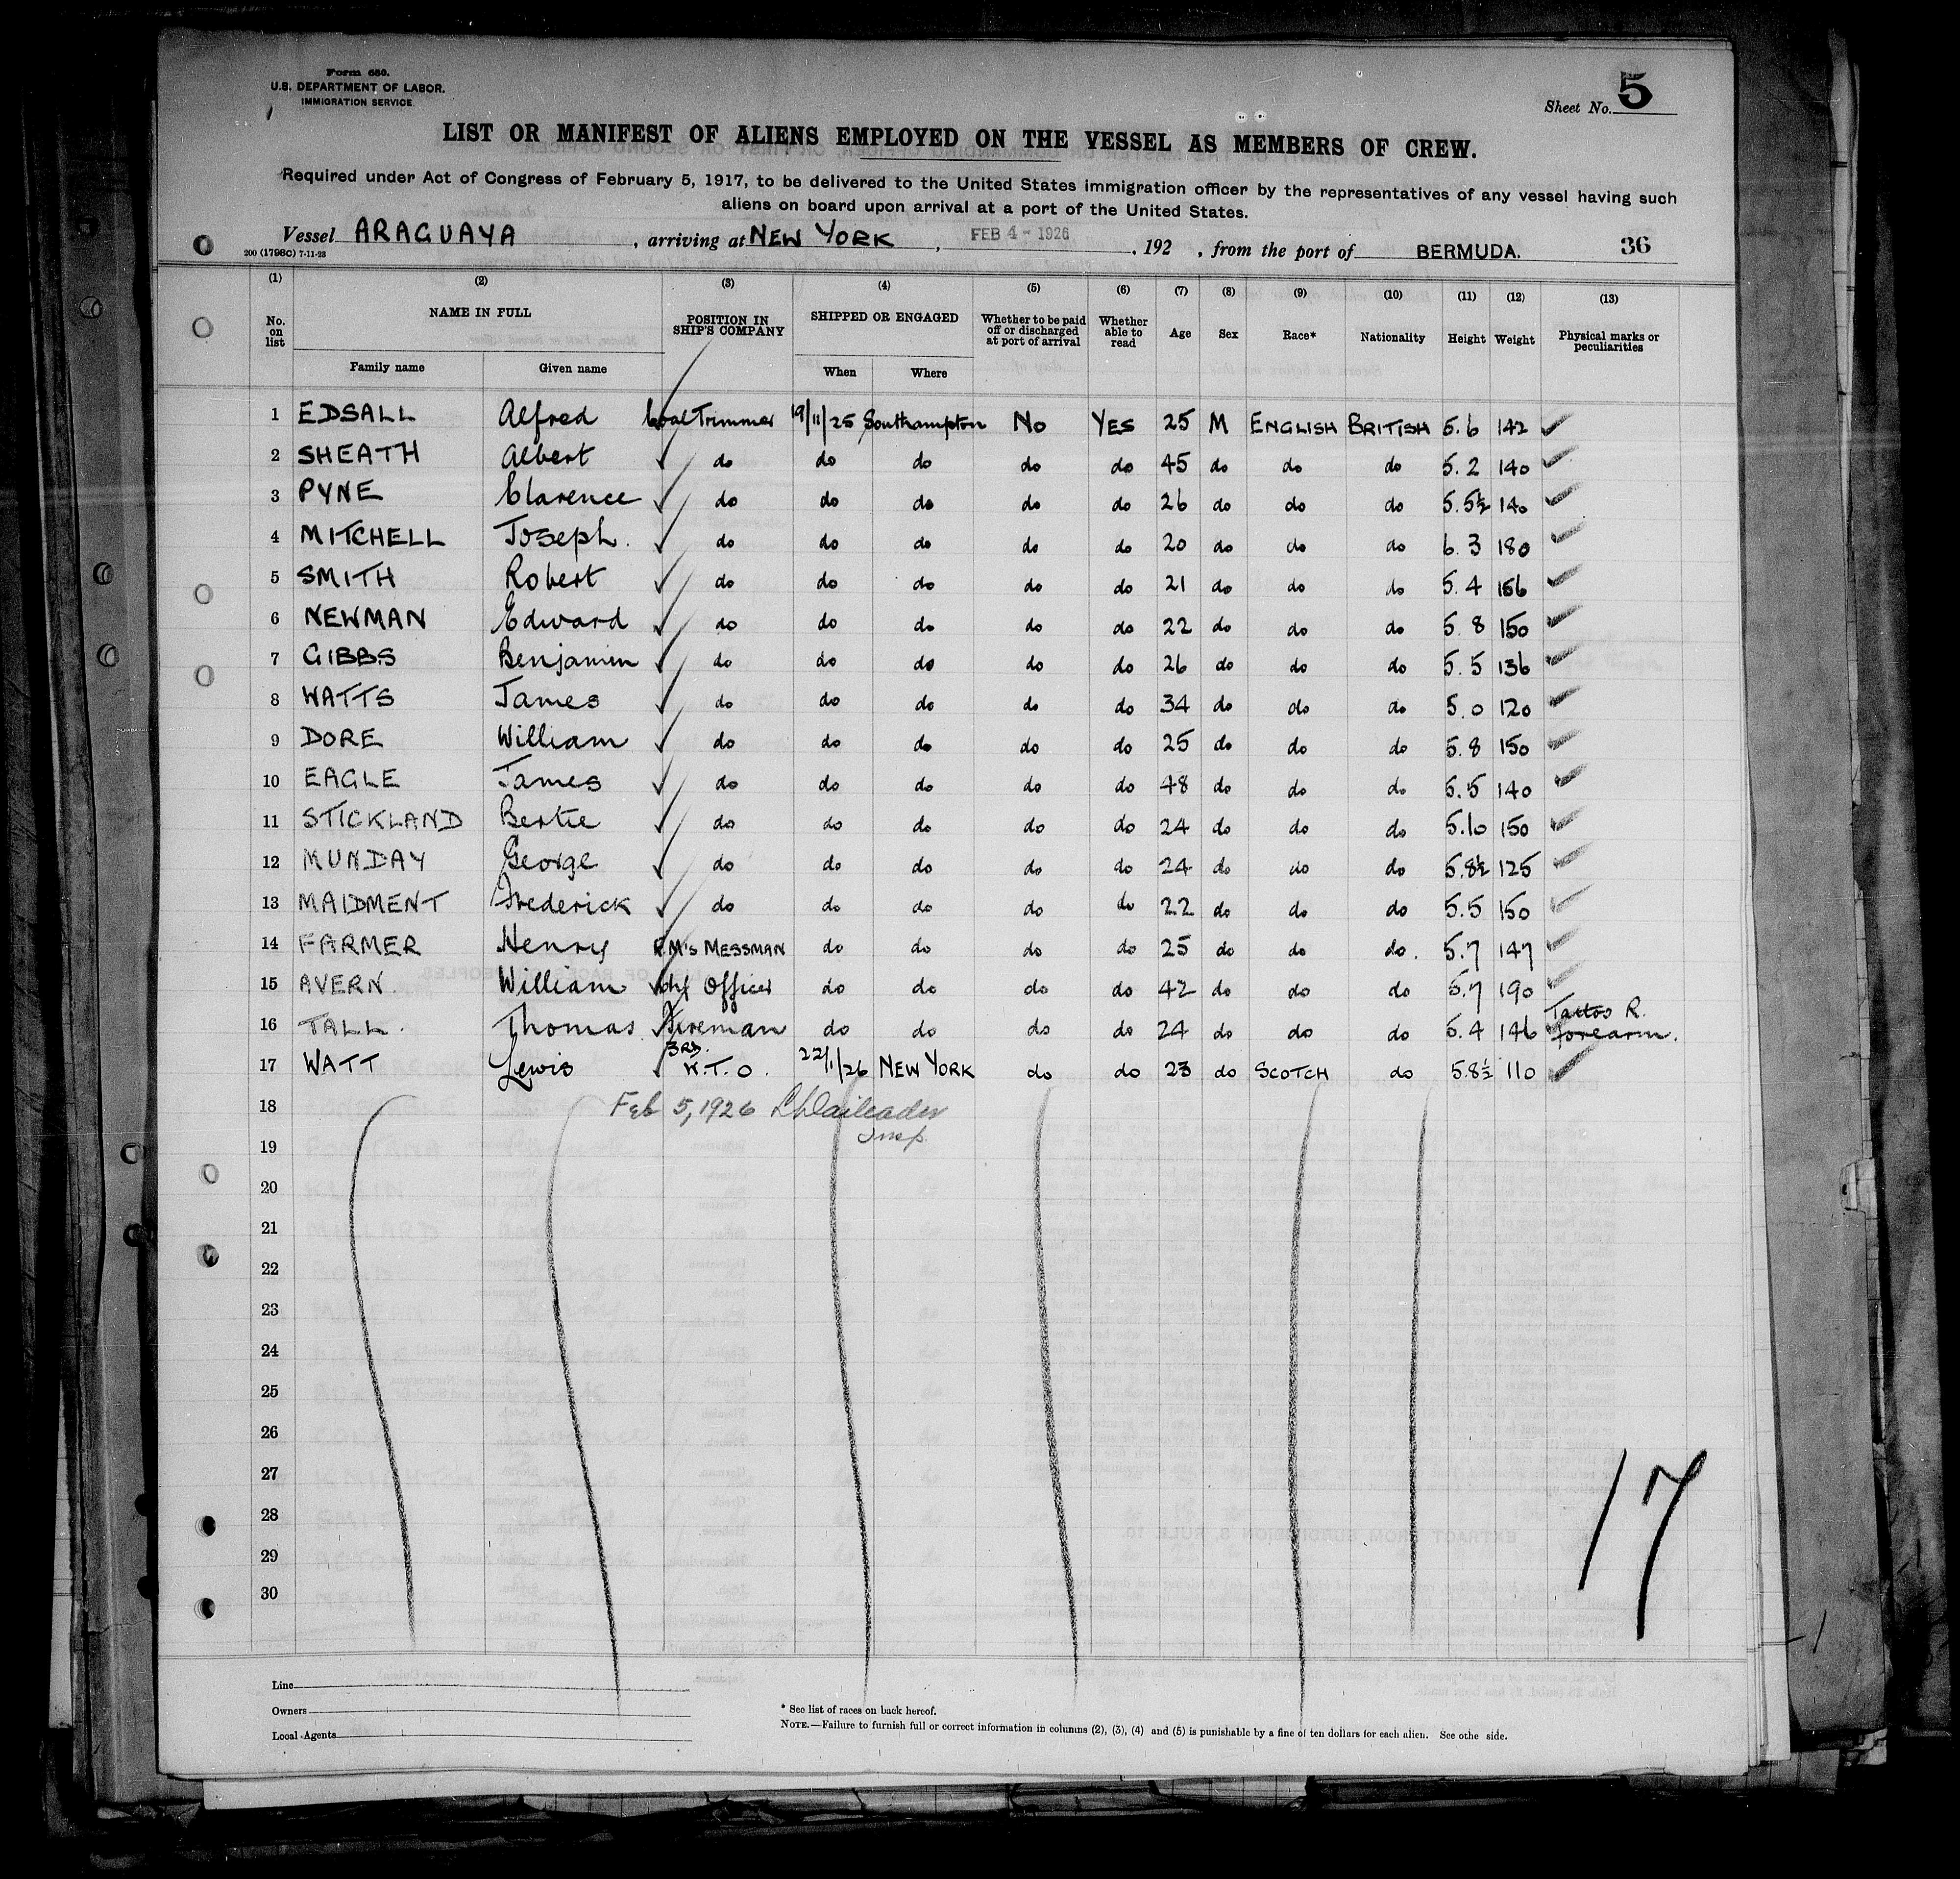 Form 680.
U.S. DEPARTMENT OF LABOR.
IMMIGRATION SERVICE
Sheet No. 5
LIST OR MANIFEST OF ALIENS EMPLOYED ON THE VESSEL AS MEMBERS OF CREW.
Required under Act of Congress of February 5, 1917, to be delivered to the United States immigration officer by the representatives of any vessel having such
aliens on board upon arrival at a port of the United States.
Vessel ARAGUAYA, arriving at NEW YORK, FEB 4 - 1926, 192 , from the port of BERMUDA. 36
200 (1798C) 7-11-23
(1) (2) (3) (4) (5) (6) (7) (8) (9) (10) (11) (12) (13)
No. on list NAME IN FULL Family name Given name POSITION IN SHIP'S COMPANY SHIPPED OR ENGAGED When Where Whether to be paid off or discharged at port of arrival Whether able to read Age Sex Race* Nationality Height Weight Physical marks or peculiarities
1 EDSALL Alfred Coal Trimmer 19/11/25 Southampton No YES 25 M ENGLISH BRITISH 5.6 142 ✓
2 SHEATH Albert ✓ do do do do do 45 do do do 5.2 140 ✓
3 PYNE Clarence ✓ do do do do do 26 do do do 5.5½ 140 ✓
4 MITCHELL Joseph. ✓ do do do do do 20 do do do 6.3 180 ✓
5 SMITH Robert ✓ do do do do do 21 do do do 5.4 156 ✓
6 NEWMAN Edward ✓ do do do do do 22 do do do 5 8 150 ✓
7 GIBBS Benjamin ✓ do do do do do 26 do do do 5.5 136 ✓
8 WATTS James ✓ do do do do do 34 do do do 5.0 120 ✓
9 DORE William ✓ do do do do do 25 do do do 5.8 150 ✓
10 EAGLE James ✓ do do do do do 48 do do do 5.5 140 ✓
11 STICKLAND Bertie ✓ do do do do do 24 do do do 5.10 150 ✓
12 MUNDAY George ✓ do do do do do 24 do do do 5.8½ 125 ✓
13 MAIDMENT Frederick ✓ do do do do do 22 do do do 5.5 150 ✓
14 FARMER Henry F.M's MESSMAN do do do do 25 do do do. 5.7 147 ✓
15 AVERN. William ✓ Officer do do do do 42 do do do 5.7 190 ✓
16 TALL. Thomas ✓ Fireman do do do do 24 do do do 5.4 146 Tattoo R. forearm.
17 WATT Lewis ✓ 3RD. W.T.O. 22/1/26 NEW YORK do do 23 do SCOTCH do 5.8½ 110 ✓
18 Feb 5, 1926
Insp.
19
20
21
22
23
24
25
26
27
28
29
30
17
Line
Owners
Local Agents
* See list of races on back hereof.
NOTE.—Failure to furnish full or correct information in columns (2), (3), (4) and (5) is punishable by a fine of ten dollars for each alien. See othe side.